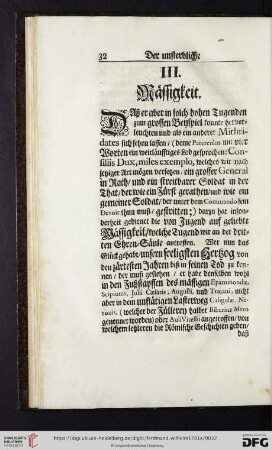 32 Der unsterbliche
III.
Mässigkeit.
DAß er aber in solch hohen Tugenden
zum grossen Beyspiel konnte hervor-
leuchten und als ein anderer Mithri-
dates sich sehen lassen / (deme Paterculus mit vier
Worten ein weitläufftiges Lob gesprochen: Con-
siliis Dux, miles exemplo, welches wir nach
jetziger Art mögen versetzen: ein grosser General
in Rath / und ein streitbarer Soldat in der
That / der wie ein Fürst gerathen / und wie ein
gemeiner Soldat / der unter dem Commando sein
Devoir thun muß / gestritten;) darzu hat inson-
derheit gedienet die von Jugend auf geliebte
Mässigkeit / welche Tugend wir an der drit-
ten Ehren-Säule antreffen. Wer nun das
Glück gehabt / unsern seeligsten Hertzog von
den zärtesten Jahren biß in seinen Tod zu ken-
nen / der muß gestehen / er habe denselben wohl
in den Fußstapffen des mässigen Epaminondæ,
Scipionis, Julii Cæsaris, Augusti, und Trajani, nicht
aber in dem unflätigen Lasterweg Caligulæ, Ne-
ronis, (welcher der Füllerey halber Biberius Mero
genennet worden) oder Auli Vitellii angetroffen / von
welchem letzteren die Römische Geschichten geben /
daß
UNIVERSITÄTS-
BIBLIOTHEK
HEIDELBERG
https://digi.ub.uni-heidelberg.de/diglit/ferdinand_wilhelm1701a/0032
© Universitätsbibliothek Heidelberg